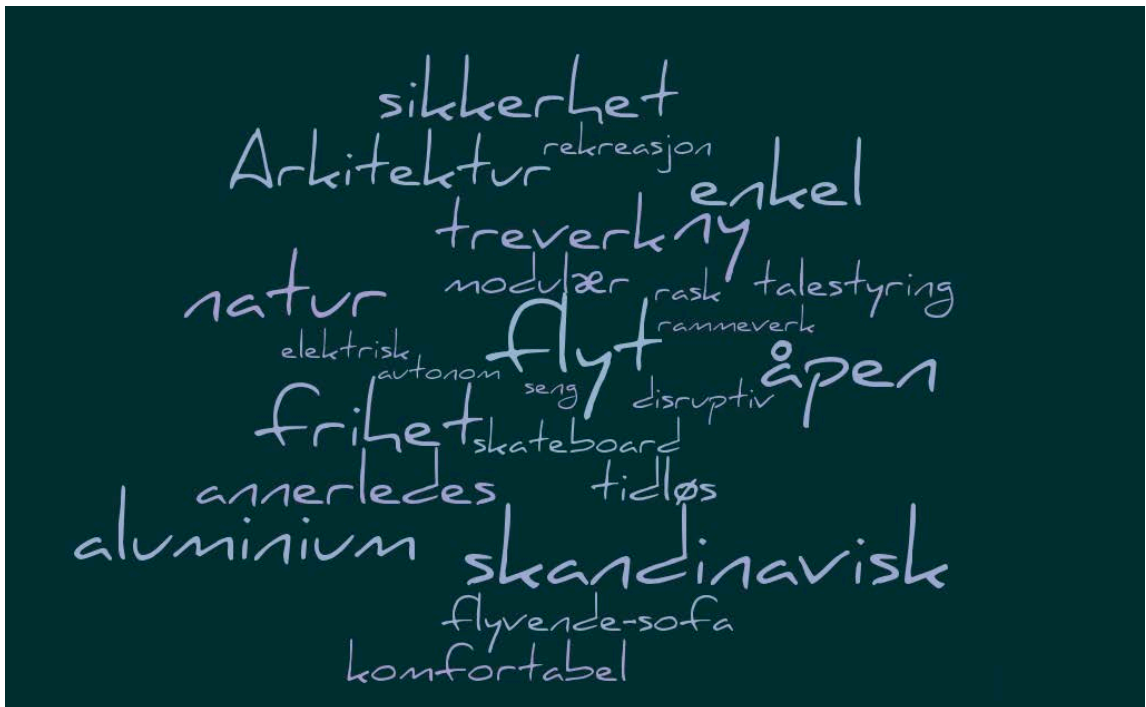 sikkerhet
Arkitektur rekreasjon
enkel
treverk ny
natur modulær rask talestyring
flyt rammeverk
elektrisk autonom seng disruptiv åpen
frihet skateboard
annerledes tidløs
aluminium skandinavisk
flyvende-sofa
komfortabel